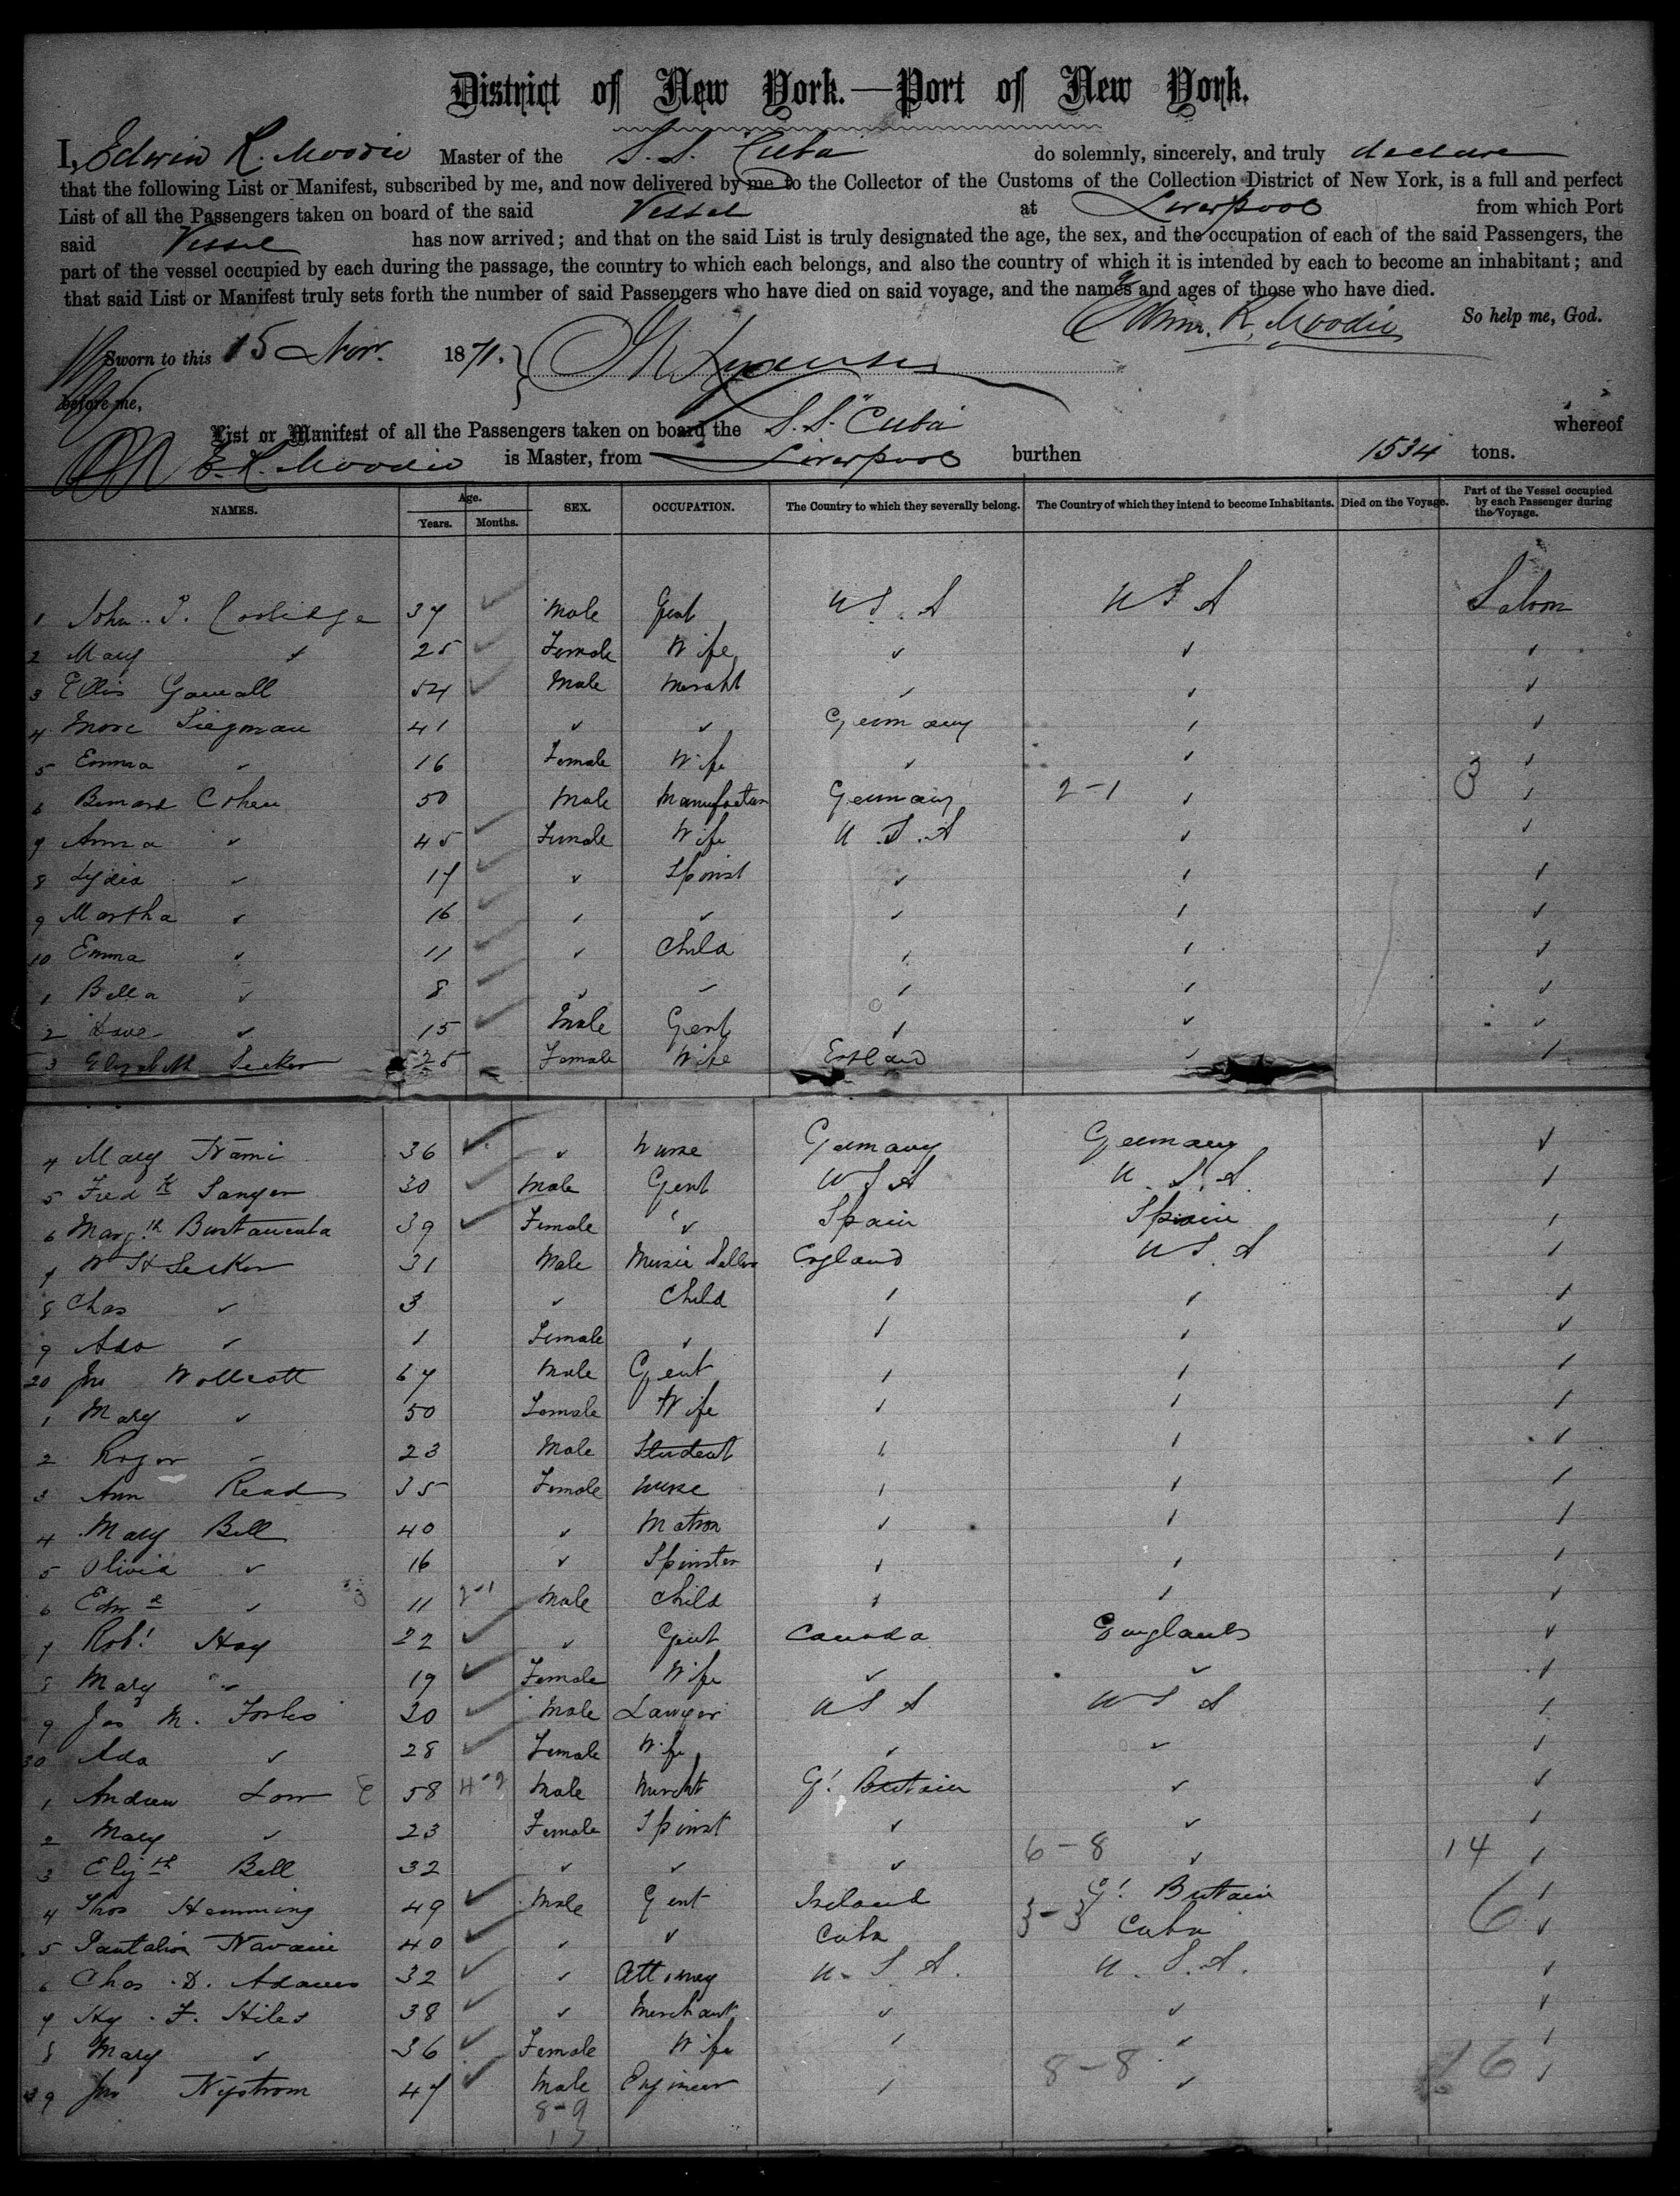 District of New York.—Port of New York.
I, Edwin R. Moodie Master of the S. S. Cuba do solemnly, sincerely, and truly declare
that the following List or Manifest, subscribed by me, and now delivered by me to the Collector of the Customs of the Collection District of New York, is a full and perfect
List of all the Passengers taken on board of the said Vessel at Liverpool from which Port
said Vessel has now arrived; and that on the said List is truly designated the age, the sex, and the occupation of each of the said Passengers, the
part of the vessel occupied by each during the passage, the country to which each belongs, and also the country of which it is intended by each to become an inhabitant; and
that said List or Manifest truly sets forth the number of said Passengers who have died on said voyage, and the names and ages of those who have died.
So help me, God.
Edwin R. Moodie
Sworn to this 15 Nov. 1871.
before me,
List or Manifest of all the Passengers taken on board the S. S. "Cuba" whereof
E. R. Moodie is Master, from Liverpool burthen 1534 tons.
NAMES. Age. Years. Months. SEX. OCCUPATION. The Country to which they severally belong. The Country of which they intend to become Inhabitants. Died on the Voyage. Part of the Vessel occupied by each Passenger during the Voyage.
1 John. P. Coolidge 37 Male Gent U S. A U S A Saloon
2 Mary ✓ 25 Female Wife ✓ ✓ ✓
3 Ellis 54 Male Mercht ✓ ✓ ✓
4 41 ✓ ✓ Germany ✓ ✓
5 Emma ✓ 16 Female Wife ✓ ✓ ✓
6 Bernard Cohen 50 Male Manufactur Germany 2-1 ✓ 3 ✓
7 Anna ✓ 45 Female Wife U. S. A ✓ ✓
8 Lydia ✓ 17 ✓ Spinst ✓ ✓ ✓
9 Martha ✓ 16 ✓ ✓ ✓ ✓ ✓
10 Emma ✓ 11 ✓ Child ✓ ✓ ✓
1 Bella ✓ 8 ✓ ✓ ✓ ✓ ✓
2 Dave ✓ 15 Male Gent ✓ ✓ ✓
3 Elizabeth Secker 25 Female Wife England ✓ ✓
4 Mary 36 ✓ Nurse Germany Germany ✓
5 Fredk Sanger 30 Male Gent U S A U. S. A. ✓
6 Margth 39 Female ✓ Spain Spain ✓
7 W H Secker 31 Male Music Seller England U S. A ✓
8 Chas ✓ 3 ✓ Child ✓ ✓ ✓
9 Ada ✓ 1 Female ✓ ✓ ✓ ✓
20 Jno Wollcott 67 Male Gent ✓ ✓ ✓
1 Mary ✓ 50 Female Wife ✓ ✓ ✓
2 Roger ✓ 23 Male Student ✓ ✓ ✓
3 Ann Read 35 Female Nurse ✓ ✓ ✓
4 Mary Bell 40 ✓ Matron ✓ ✓ ✓
5 Olivia ✓ 16 ✓ Spinster ✓ ✓ ✓
6 Edwd ✓ 11 2-1 Male Child ✓ ✓ ✓
7 Robt Hay 22 ✓ Gent Canada England ✓
8 Mary ✓ 19 Female Wife ✓ ✓ ✓
9 Jas M. Forbes 30 Male Lawyer U S A U S A ✓
30 Ada ✓ 28 Female Wife ✓ ✓ ✓
1 Andrew Low 58 4-2 Male Mercht Gt Britain ✓ ✓
2 Mary ✓ 23 Female Spinst ✓ ✓ ✓
3 Elizth Bell 32 ✓ ✓ ✓ 6-8 ✓ 14 ✓
4 Thos Hemming 49 Male Gent Ireland Gt Britain ✓
5 Pantalion 40 ✓ ✓ Cuba 3-3 Cuba 6 ✓
6 Chas. D. Adams 32 ✓ Attorney U. S. A. U. S. A. ✓
7 Hy. F. Hiles 38 ✓ Merchant ✓ ✓ ✓
8 Mary ✓ 36 Female Wife ✓ ✓ ✓
39 Jno Nystrom 47 Male Engineer ✓ 8-8 ✓ 16 ✓
8-9